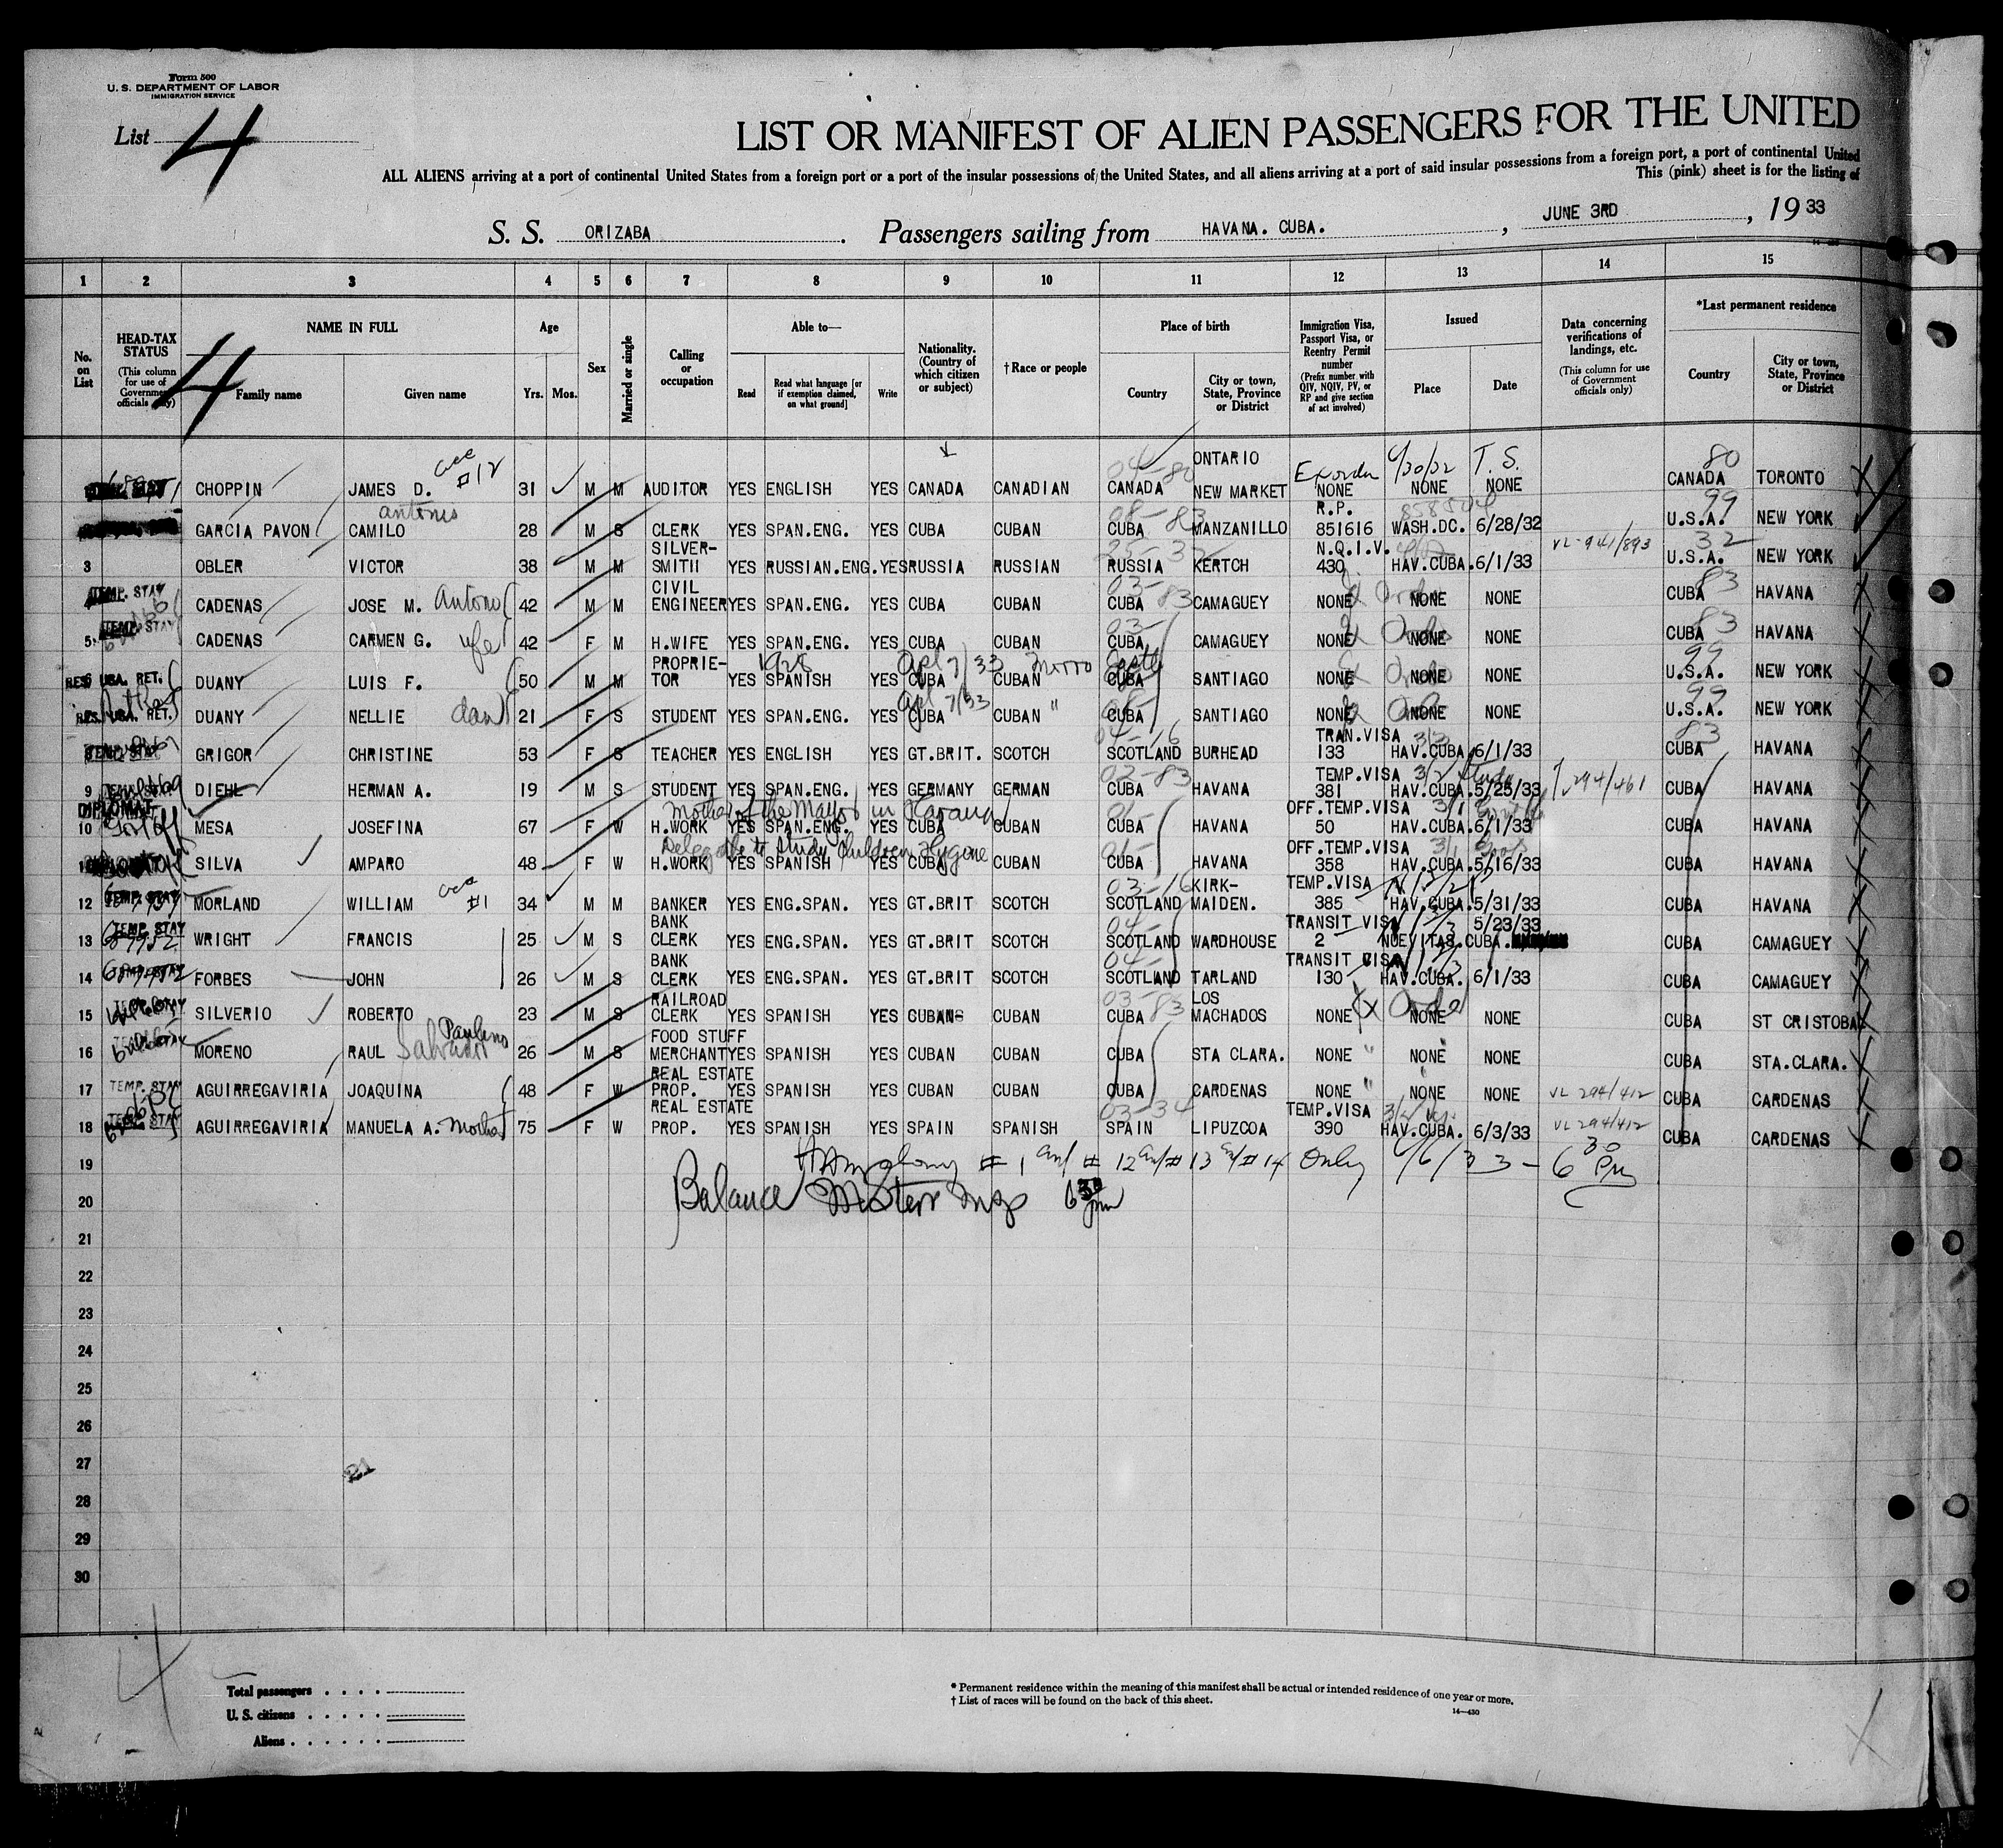 Form 500
U. S. DEPARTMENT OF LABOR
IMMIGRATION SERVICE
List 4
LIST OR MANIFEST OF ALIEN PASSENGERS FOR THE UNITED
ALL ALIENS arriving at a port of continental United States from a foreign port or a port of the insular possessions of the United States, and all aliens arriving at a port of said insular possessions from a foreign port, a port of continental United
This (pink) sheet is for the listing of
S. S. ORIZABA. Passengers sailing from HAVANA. CUBA. , JUNE 3RD , 1933
1 2 3 4 5 6 7 8 9 10 11 12 13 14 15
No. on List
HEAD-TAX STATUS (This column for use of Government officials only)
4
NAME IN FULL Family name Given name
Age Yrs. Mos.
Sex
Married or single
Calling or occupation
Able to— Read Read what language [or if exemption claimed, on what ground] Write
Nationality. (Country of which citizen or subject)
†Race or people
Place of birth Country City or town, State, Province or District
Immigration Visa, Passport Visa, or Reentry Permit number (Prefix number with QIV, NQIV, PV, or RP and give section of act involved)
Issued Place Date
Data concerning verifications of landings, etc. (This column for use of Government officials only)
*Last permanent residence Country City or town, State, Province or District
CHOPPIN JAMES D. #12 31 M M AUDITOR YES ENGLISH YES CANADA CANADIAN 04-80 CANADA ONTARIO NEW MARKET NONE NONE 4/30/32 T. S. NONE 80 CANADA TORONTO
GARCIA PAVON CAMILO antonio 28 M S CLERK YES SPAN.ENG. YES CUBA CUBAN 08-83 CUBA MANZANILLO R.P. 851616 WASH.DC. 6/28/32 99 U.S.A. NEW YORK
3 OBLER VICTOR 38 M M SILVER-SMITH YES RUSSIAN.ENG. YES RUSSIA RUSSIAN 25-32 RUSSIA KERTCH N.Q.I.V. 430 HAV.CUBA. 6/1/33 VL-941/893 32 U.S.A. NEW YORK
4 TEMP. STAY CADENAS JOSE M. Antono 42 M M CIVIL ENGINEER YES SPAN.ENG. YES CUBA CUBAN 03-83 CUBA CAMAGUEY NONE NONE NONE 83 CUBA HAVANA
5 TEMP. STAY CADENAS CARMEN G. wfe 42 F M H.WIFE YES SPAN.ENG. YES CUBA CUBAN 03- CUBA CAMAGUEY NONE NONE NONE 83 CUBA HAVANA
6 RES. USA. RET. DUANY LUIS F. 50 M M PROPRIE-TOR YES 1928 SPANISH YES Apl 7/33 CUBA CUBAN Morro Castle CUBA SANTIAGO NONE NONE NONE 99 U.S.A. NEW YORK
RES. USA. RET. DUANY NELLIE dau 21 F S STUDENT YES SPAN.ENG. YES Apl 7/33 CUBA CUBAN " CUBA SANTIAGO NONE NONE NONE 99 U.S.A. NEW YORK
GRIGOR CHRISTINE 53 F S TEACHER YES ENGLISH YES GT.BRIT. SCOTCH 04-16 SCOTLAND BURHEAD TRAN.VISA 133 HAV.CUBA. 6/1/33 83 CUBA HAVANA
9 DIEHL HERMAN A. 19 M S STUDENT YES SPAN.ENG. YES GERMANY GERMAN 02-83 CUBA HAVANA TEMP.VISA 381 HAV.CUBA. 5/25/33 294/461 CUBA HAVANA
10 DIPLOMAT MESA JOSEFINA 67 F W Mother of the Mayor in Havana H.WORK YES SPAN.ENG. YES CUBA CUBAN 01- CUBA HAVANA OFF.TEMP.VISA 50 HAV.CUBA. 6/1/33 CUBA HAVANA
SILVA AMPARO 48 F W Delegate to Study Children Hygene H.WORK YES SPANISH YES CUBA CUBAN 01- CUBA HAVANA OFF.TEMP.VISA 358 HAV.CUBA. 5/16/33 CUBA HAVANA
12 TEMP. STAY MORLAND WILLIAM #1 34 M M BANKER YES ENG.SPAN. YES GT.BRIT SCOTCH 03-16 SCOTLAND KIRK-MAIDEN. TEMP.VISA 385 HAV.CUBA. 5/31/33 CUBA HAVANA
13 TEMP. STAY WRIGHT FRANCIS 25 M S BANK CLERK YES ENG.SPAN. YES GT.BRIT SCOTCH 04- SCOTLAND WARDHOUSE TRANSIT VISA 2 NUEVITAS.CUBA. 5/23/33 CUBA CAMAGUEY
14 FORBES JOHN 26 M S BANK CLERK YES ENG.SPAN. YES GT.BRIT SCOTCH 04- SCOTLAND TARLAND TRANSIT VISA 130 HAV.CUBA. 6/1/33 CUBA CAMAGUEY
15 SILVERIO ROBERTO 23 M S RAILROAD CLERK YES SPANISH YES CUBAN CUBAN 03-83 CUBA LOS MACHADOS NONE NONE NONE CUBA ST CRISTOBAL
16 MORENO RAUL Salvador Paulino 26 M S FOOD STUFF MERCHANT YES SPANISH YES CUBAN CUBAN CUBA STA CLARA. NONE " NONE " NONE CUBA STA.CLARA.
17 TEMP. STAY AGUIRREGAVIRIA JOAQUINA 48 F W REAL ESTATE PROP. YES SPANISH YES CUBAN CUBAN CUBA CARDENAS NONE " NONE " NONE VL 294/412 CUBA CARDENAS
18 TEMP. STAY AGUIRREGAVIRIA MANUELA A. Mother 75 F W REAL ESTATE PROP. YES SPANISH YES SPAIN SPANISH 03-34 SPAIN LIPUZCOA TEMP.VISA 390 HAV.CUBA. 6/3/33 VL 294/412 CUBA CARDENAS
19 # 1 and # 12 and # 13 and # 14 Only 6/6/33 - 6 30 Pm
20 Balance 6 30 pm
21
22
23
24
25
26
27
21
28
29
30
4
Total passengers
U. S. citizens
Aliens
* Permanent residence within the meaning of this manifest shall be actual or intended residence of one year or more.
† List of races will be found on the back of this sheet.
14—430